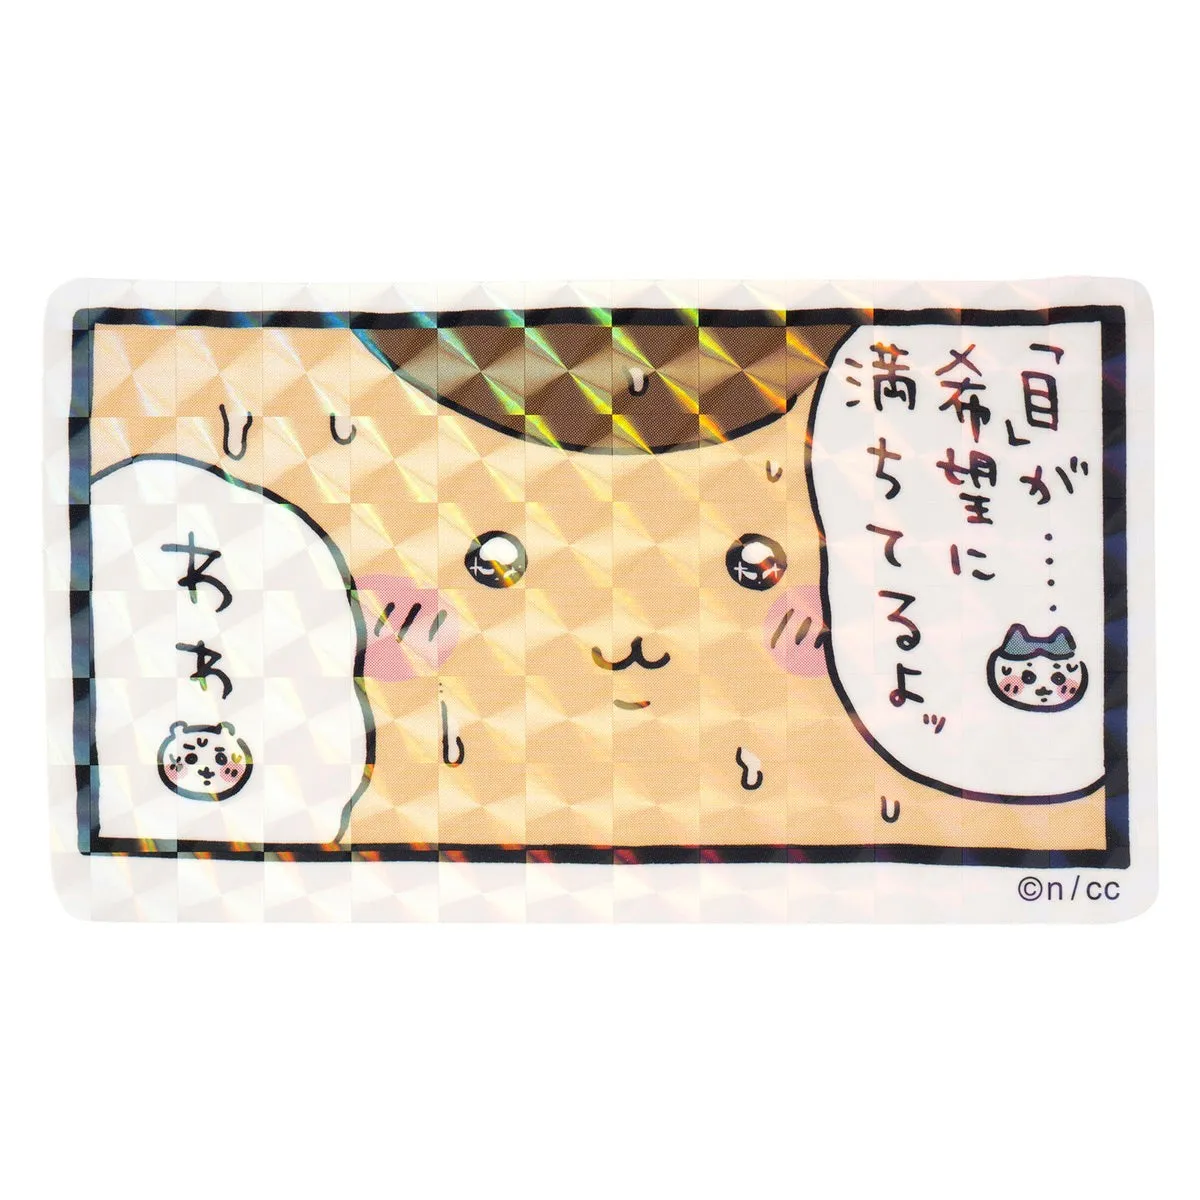 「目」が……
希望に
満ちてるよッ
わァ
©n/cc